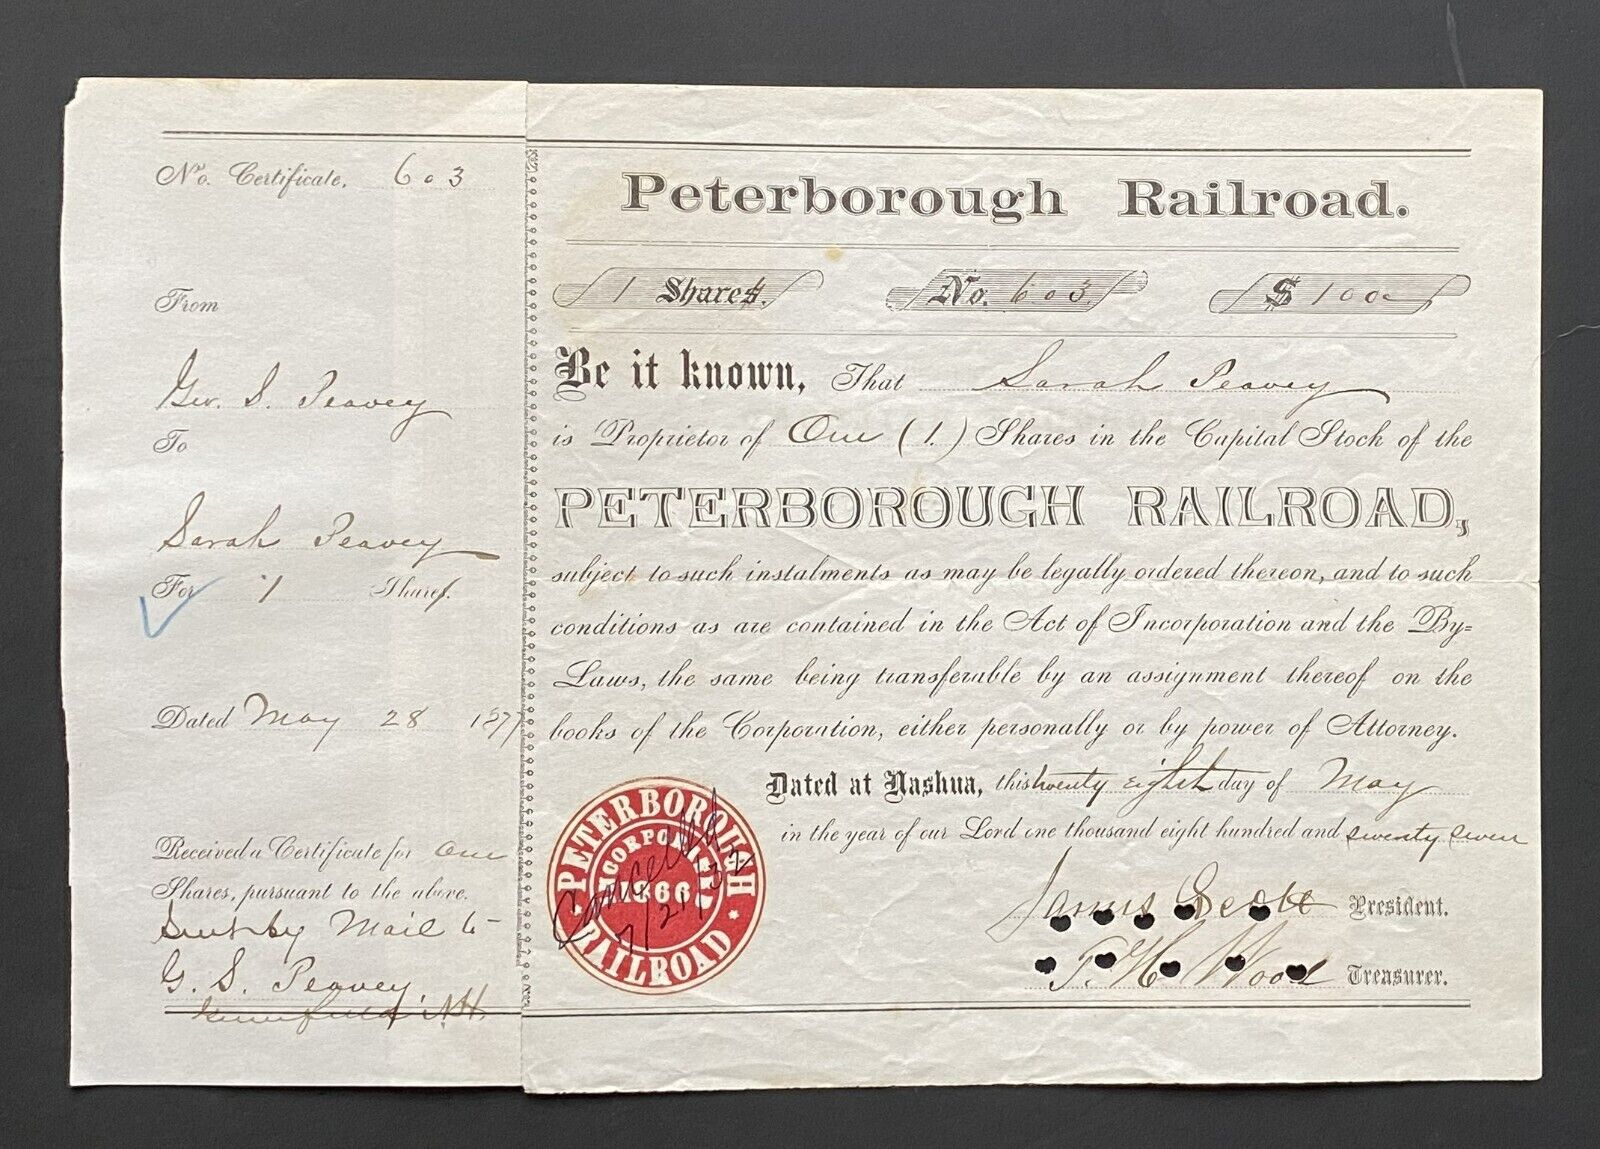 No. Certificate, 603
From
Geo. S. Peavey
To
Sarah Peavey
For 1 Shares.
Dated May 28 1877
Received a Certificate for One
Shares, pursuant to the above.
Sent by Mail to
G. S. Peavey
Greenfield N.H.
Peterborough Railroad.
1 Shares. No. 603 $ 100
Be it known, That Sarah Peavey
is Proprietor of One (1.) Shares in the Capital Stock of the
PETERBOROUGH RAILROAD,
subject to such instalments as may be legally ordered thereon, and to such
conditions as are contained in the Act of Incorporation and the By=
Laws, the same being transferable by an assignment thereof on the
books of the Corporation, either personally or by power of Attorney.
Dated at Nashua, this twenty eight day of May
in the year of our Lord one thousand eight hundred and seventy seven
PETERBOROUGH RAILROAD
INCORPORATED
1866
Cancelled
7/21/32
James Scott President.
T. H. Wood Treasurer.